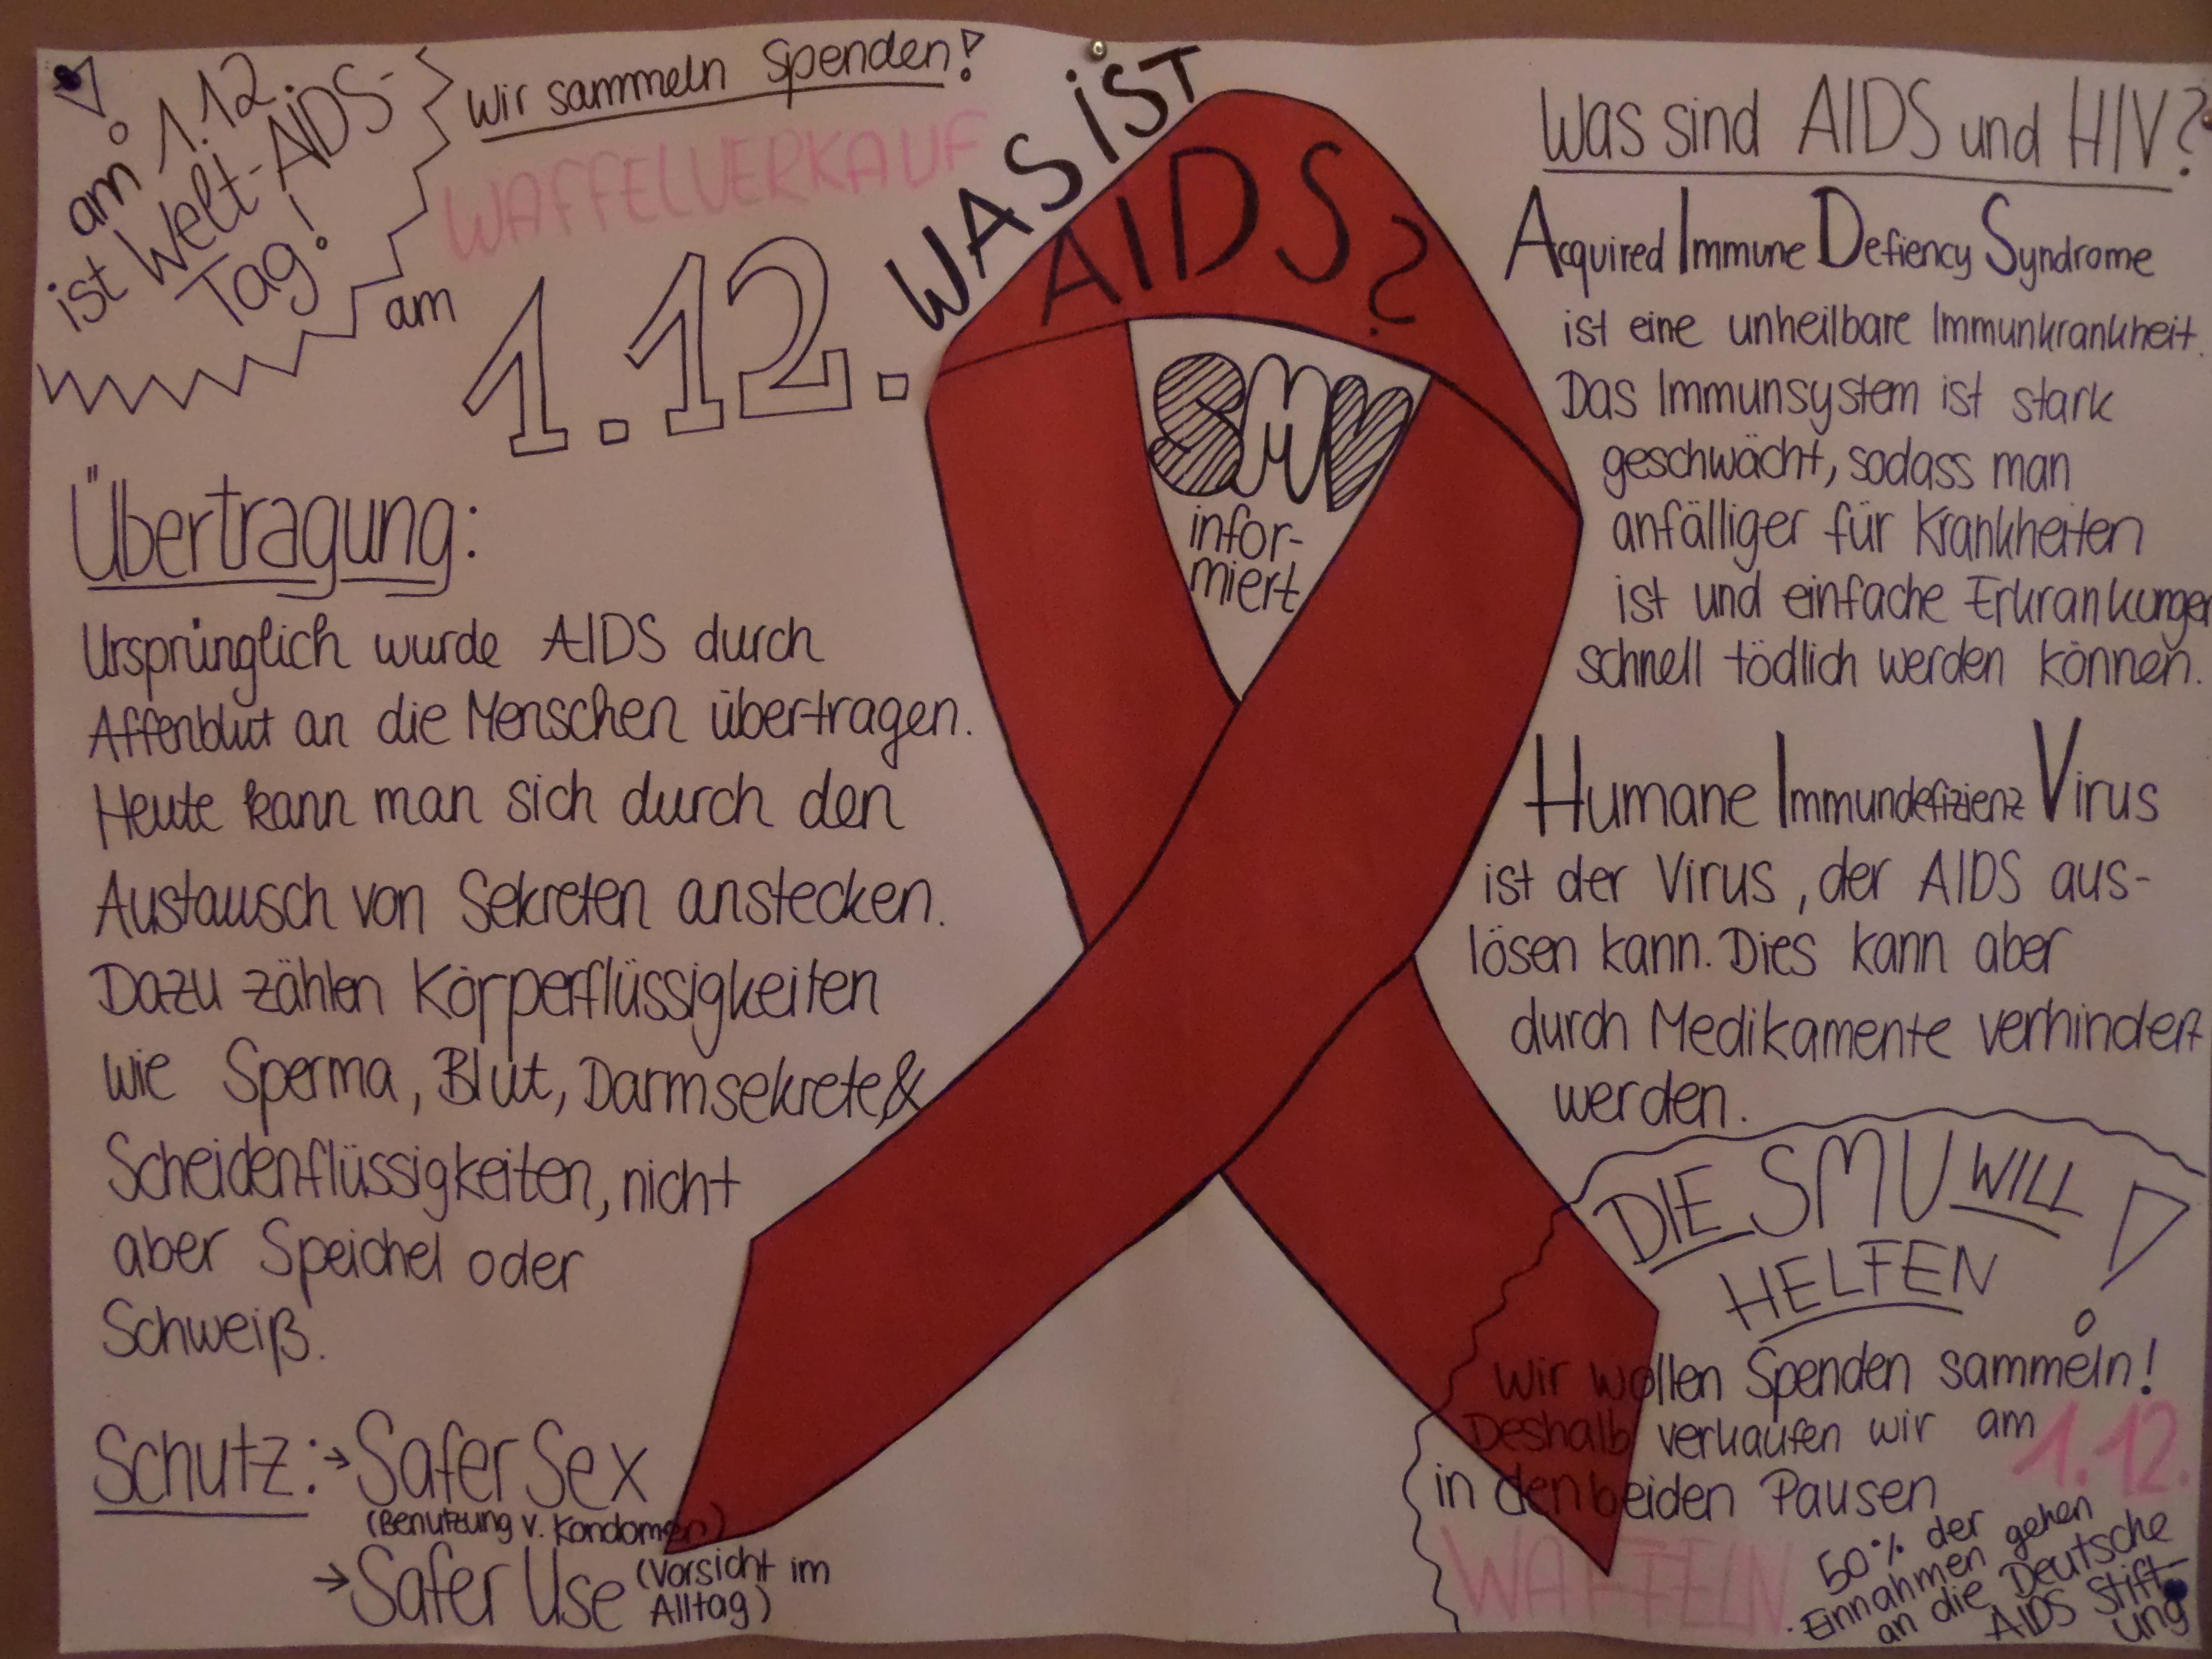 !
am 1.12.
ist Welt-AIDS-
Tag!
Wir sammeln Spenden!
WAFFELVERKAUF
am 1.12.
WAS IST
AIDS?
SMV
infor-
miert
Übertragung:
Ursprünglich wurde AIDS durch
Affenblut an die Menschen übertragen.
Heute kann man sich durch den
Austausch von Sekreten anstecken.
Dazu zählen Körperflüssigkeiten
wie Sperma, Blut, Darmsekrete &
Scheidenflüssigkeiten, nicht
aber Speichel oder
Schweiß.
Schutz: → Safer Sex
(Benutzung v. Kondomen)
→ Safer Use (Vorsicht im
Alltag)
Was sind AIDS und HIV?
Acquired Immune Defiency Syndrome
ist eine unheilbare Immunkrankheit.
Das Immunsystem ist stark
geschwächt, sodass man
anfälliger für Krankheiten
ist und einfache Erkrankungen
schnell tödlich werden können.
Humane Immundefizienz Virus
ist der Virus, der AIDS aus-
lösen kann. Dies kann aber
durch Medikamente verhindert
werden.
DIE SMV WILL
HELFEN!
Wir wollen Spenden sammeln!
Deshalb verkaufen wir am 1.12.
in den beiden Pausen
WAFFELN.
50% der
Einnahmen gehen
an die Deutsche
AIDS Stift-
ung